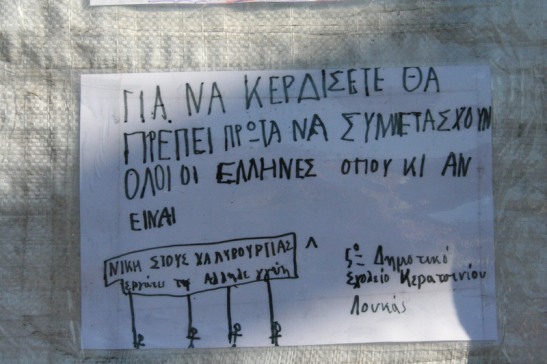 ΓΙΑ ΝΑ ΚΕΡΔΙΣΕΤΕ ΘΑ
ΠΡΕΠΕΙ ΠΡΩΤΑ ΝΑ ΣΥΜΜΕΤΑΣΧΟΥΝ
ΟΛΟΙ ΟΙ ΕΛΛΗΝΕΣ ΟΠΟΥ ΚΙ ΑΝ
ΕΙΝΑΙ
ΝΙΚΗ ΣΤΟΥΣ ΧΑΛΥΒΟΥΡΓΙΑΣ
εργάτες της Αλληλεγγύη
5ο Δημοτικό
Σχολείο Κερατσινίου
Λουκάς